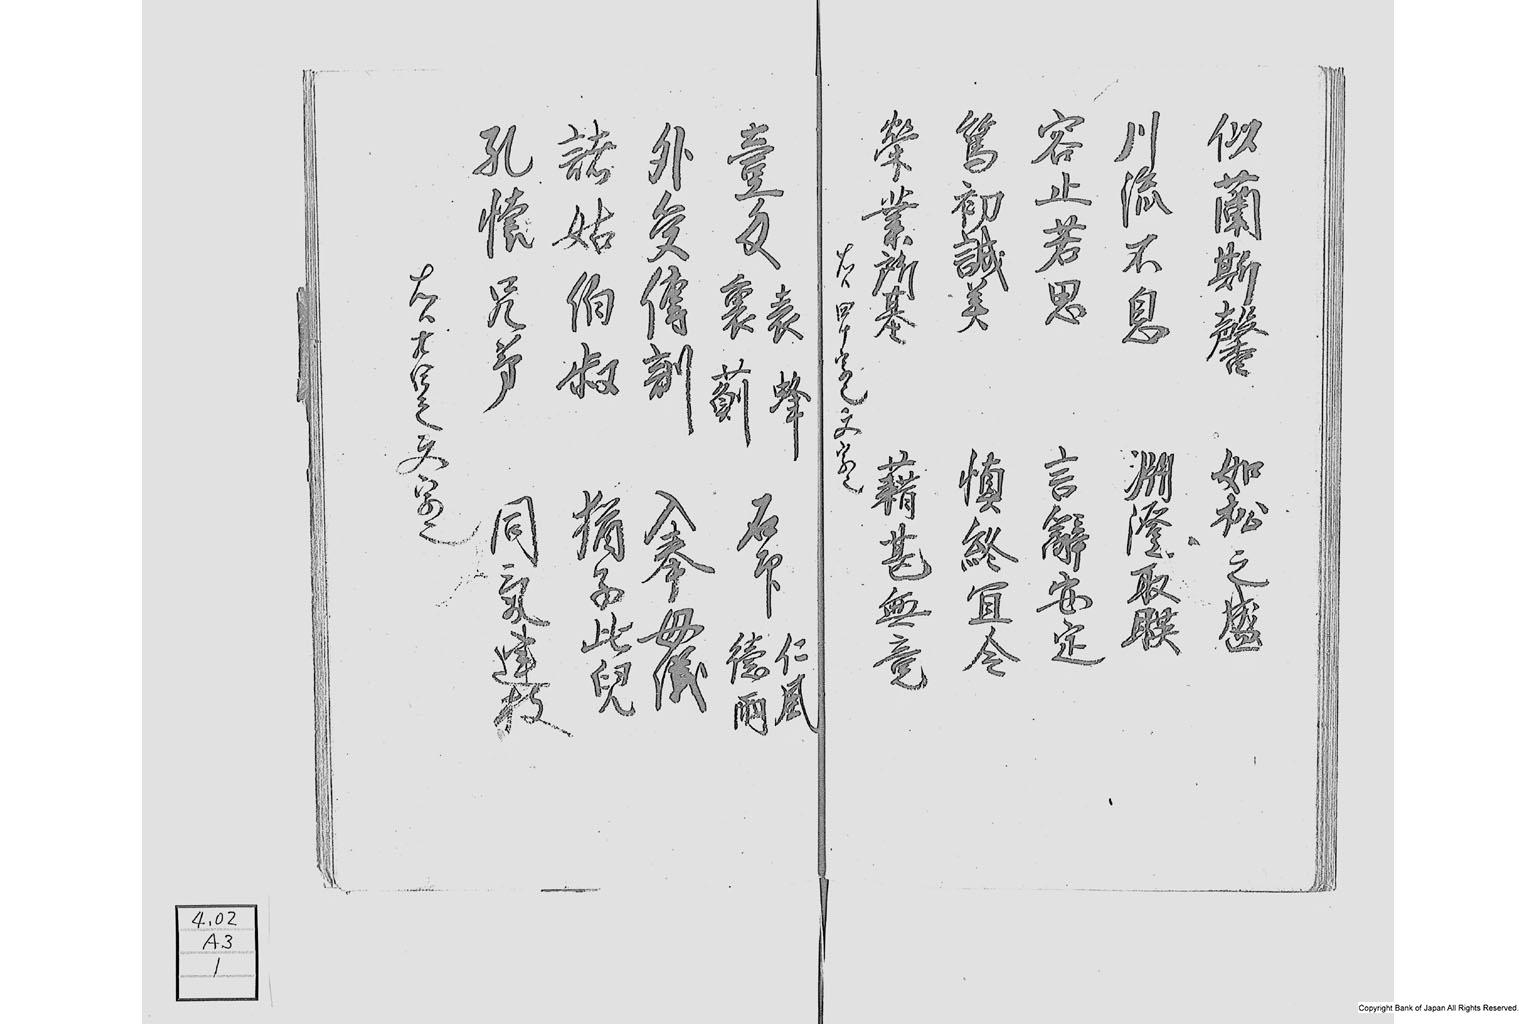 似蘭斯馨　如松之盛
川流不息　淵澄取暎
容止若思　言辭安定
篤初誠美　慎終宜令
榮業所基　藉甚無竟
四十 文
仁風
徳雨
外受傅訓　入奉母儀
諸姑伯叔　猶子比兒
孔懐兄弟　同氣連枝
文
4.02
A3
1
Copyright Bank of Japan All Rights Reserved.